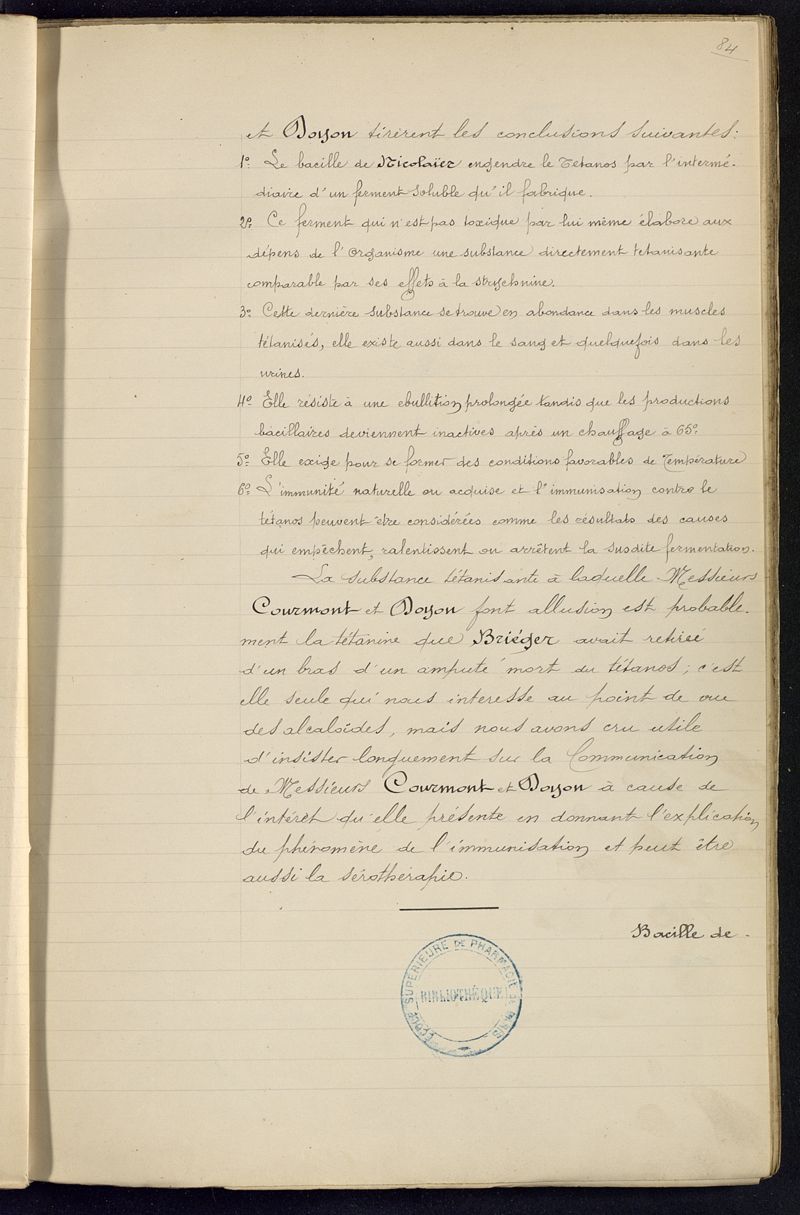 84
et Doyon tirèrent les conclusions suivantes:
1º Le bacille de Nicolaïer engendre le Tetanos par l'intermé-
diaire d'un ferment soluble qu'il fabrique.
2º Ce ferment qui n'est pas toxique par lui même élabore aux
dépens de l'Organisme une substance directement tetanisante
comparable par ses effets à la strychnine.
3º Cette dernière substance se trouve en abondance dans les muscles
tétanisés, elle existe aussi dans le sang et quelquefois dans les
urines.
4º Elle résiste à une ebullition prolongée tandis que les productions
bacillaires deviennent inactives après un chauffage à 65º.
5º Elle exige pour se former des conditions favorables de Température
6º L'immunité naturelle ou acquise et l'immunisation contre le
tétanos peuvent être considérées comme les résultats des causes
qui empêchent, ralentissent ou arrêtent la susdite fermentation.
La substance tétanisante à laquelle Messieurs
Courmont et Doyon font allusion est probable-
ment la tétanine que Briéger avait retirée
d'un bras d'un amputé mort du tétanos; c'est
elle seule qui nous interesse au point de vue
des alcaloïdes, mais nous avons cru utile
d'insister longuement sur la Communication
de Messieurs Courmont et Doyon à cause de
l'intérêt qu'elle présente en donnant l'explication
du phénomène de l'immunisation et peut être
aussi la sérothérapie.
Bacille de -
ÉCOLE SUPÉRIEURE DE PHARMACIE DE PARIS
BIBLIOTHÈQUE